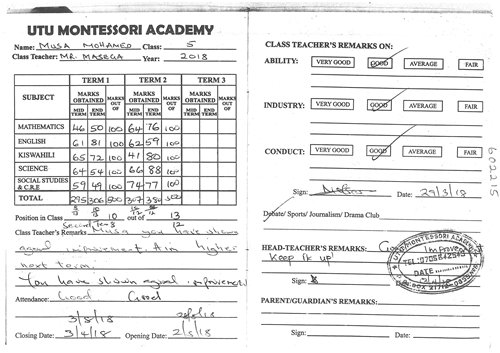 UTU MONTESSORI ACADEMY
Name: MUSA MOHAMED Class: 5
Class Teacher: MR. MASEGA Year: 2018
TERM 1 TERM 2 TERM 3
SUBJECT MARKS OBTAINED MARKS OUT OF MARKS OBTAINED MARKS OUT OF MARKS OBTAINED MARKS OUT OF
MID TERM END TERM MID TERM END TERM MID TERM END TERM
MATHEMATICS 46 50 100 64 76 100
ENGLISH 61 81 100 62 59 100
KISWAHILI 65 72 100 41 80 100
SCIENCE 64 54 100 66 88 100
SOCIAL STUDIES & C.R.E 59 49 100 74 77 100
TOTAL 295 306 500 307 380 500
Position in Class 10 out of 13
Class Teacher's Remarks: Musa you have shown
good improvement. Aim higher
next term.
You have shown good improvement
Attendance: Good Good
3/8/18
Closing Date: 3/4/18 Opening Date: 2/5/18
CLASS TEACHER'S REMARKS ON:
ABILITY: VERY GOOD GOOD AVERAGE FAIR
INDUSTRY: VERY GOOD GOOD AVERAGE FAIR
CONDUCT: VERY GOOD GOOD AVERAGE FAIR
Sign: Date: 29/3/18
Debate/ Sports/ Journalism/ Drama Club
HEAD-TEACHER'S REMARKS:
Keep it up!
UTU MONTESSORI ACADEMY
TEL: 0706842543
DATE
Sign: Date:
PARENT/GUARDIAN'S REMARKS:
Sign: Date:
602215